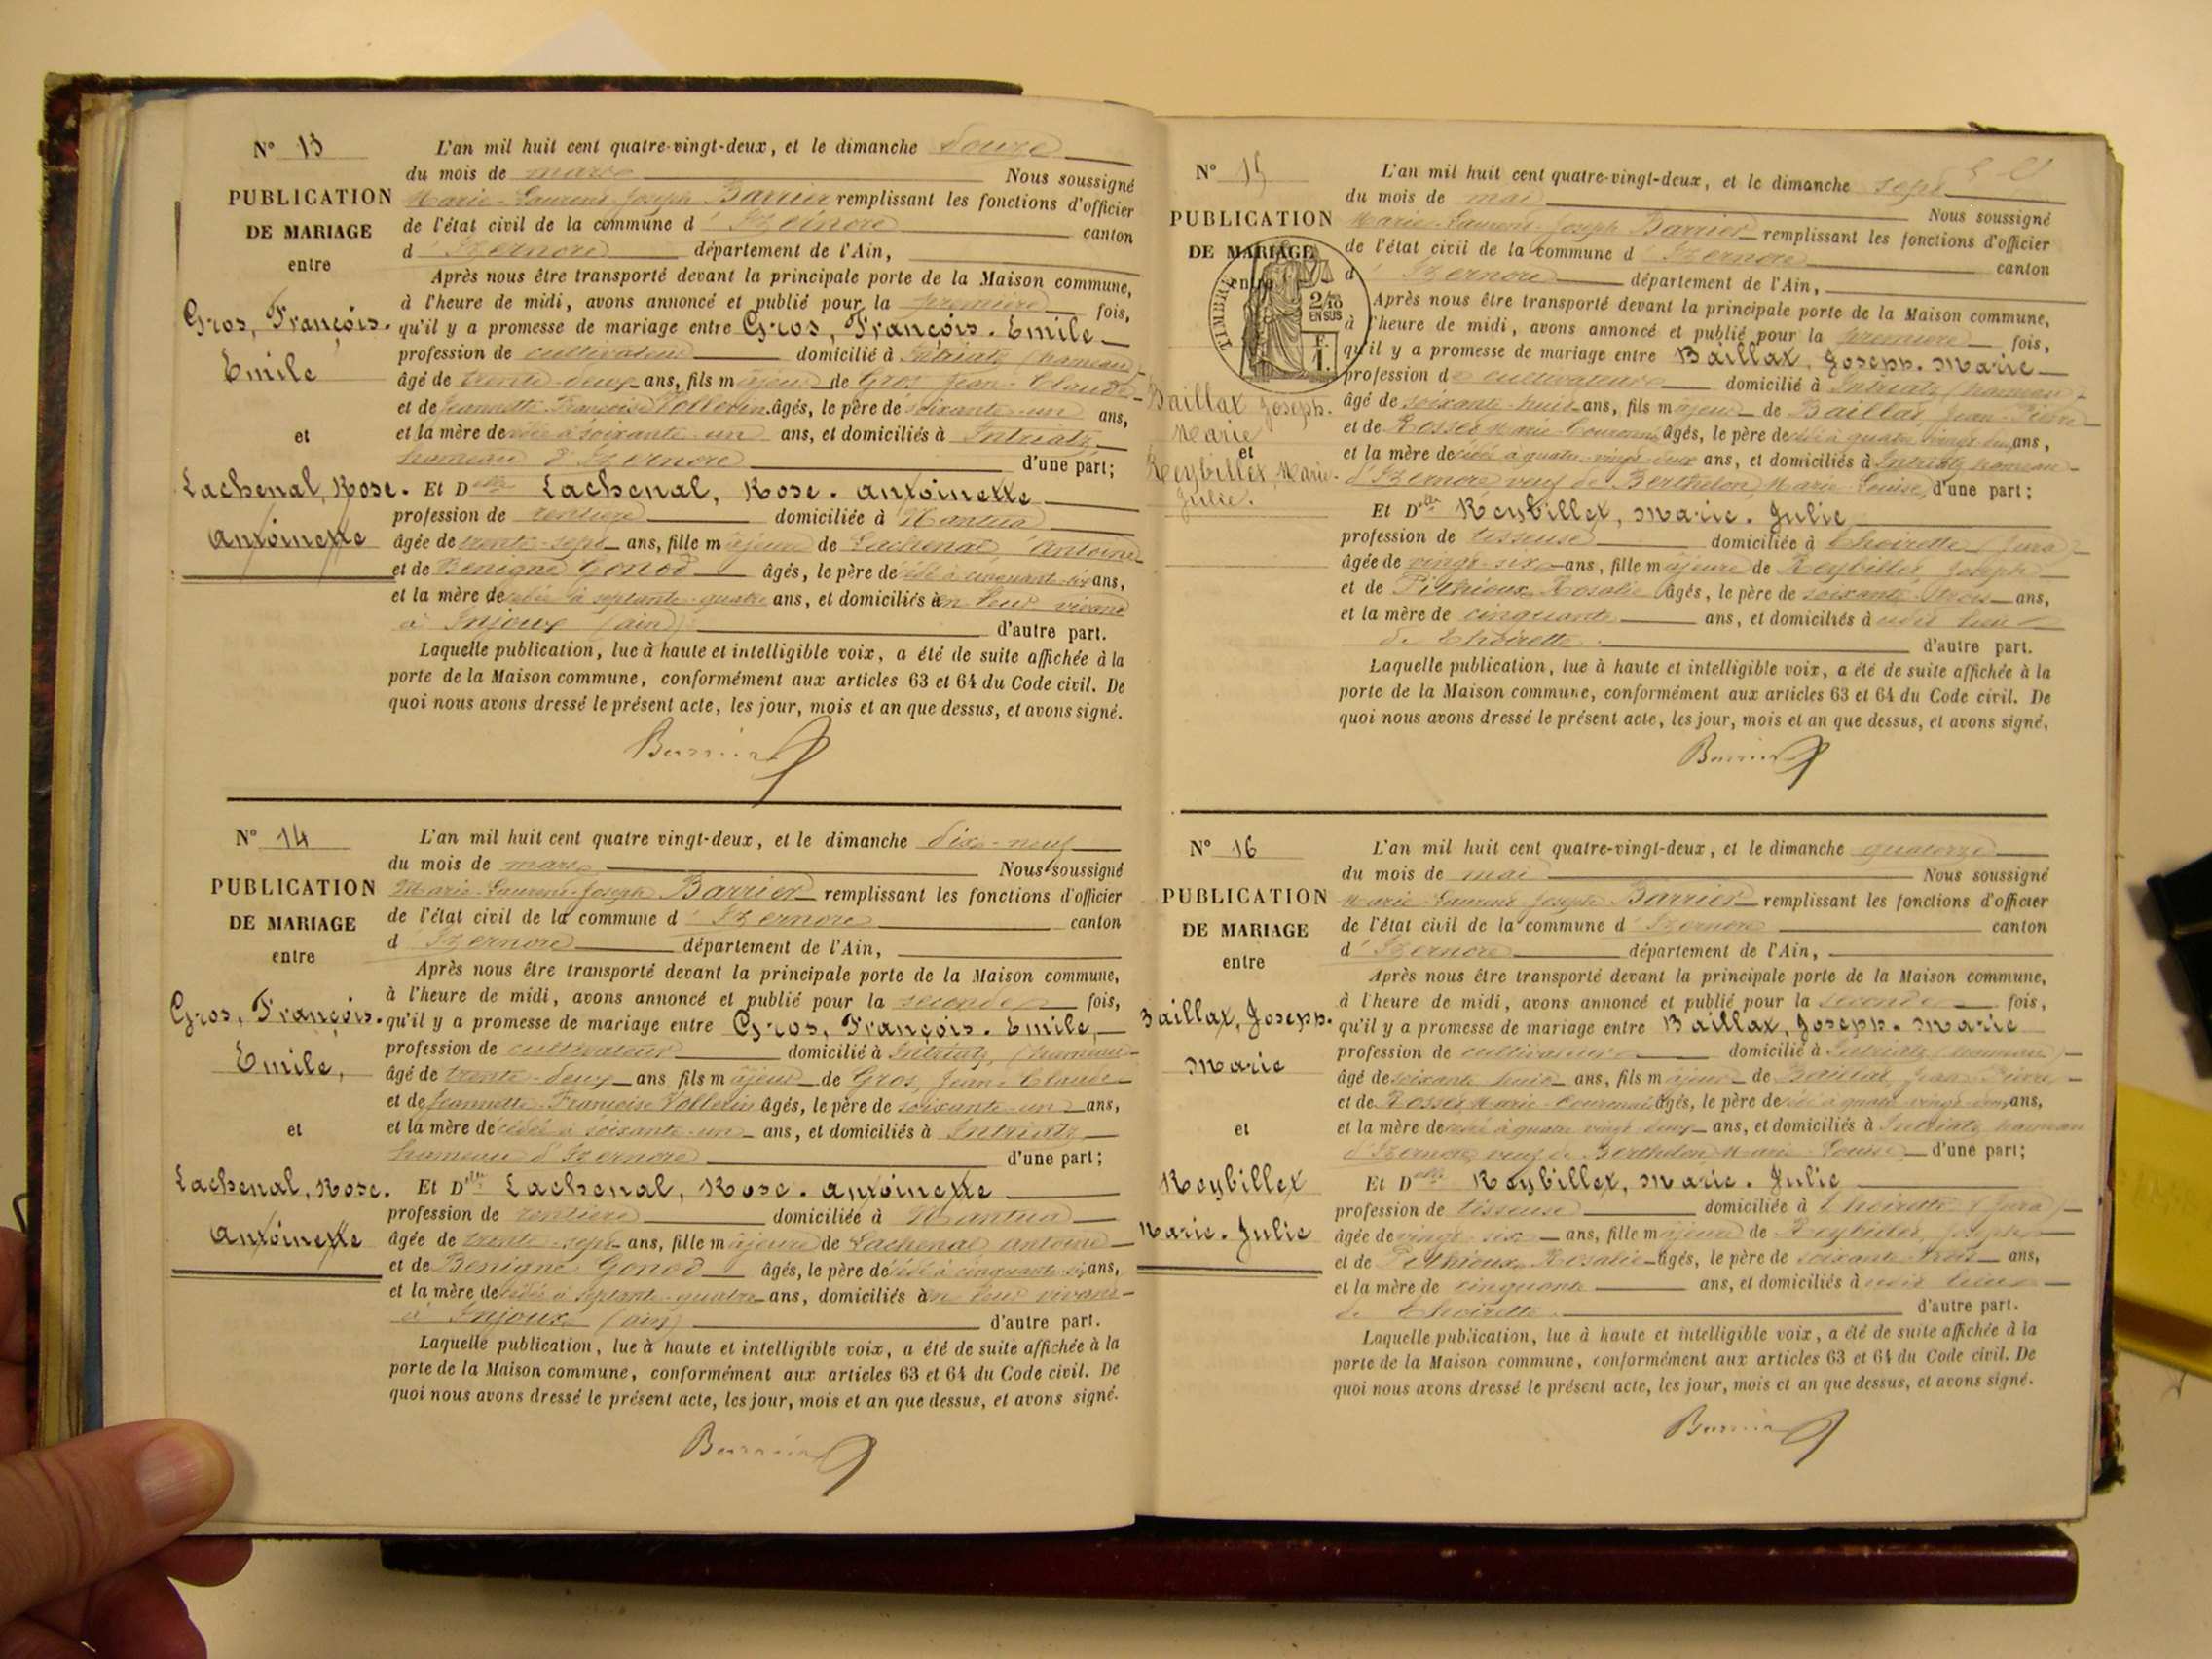 N° 13
PUBLICATION
DE MARIAGE
entre
Gros, François.
Emile
et
Lachenal, Rose.
Antoinette
L'an mil huit cent quatre-vingt-deux, et le dimanche douze
du mois de mars Nous soussigné
Marie-Laurent-Joseph Barrier remplissant les fonctions d'officier
de l'état civil de la commune d'Izernore canton
d'Izernore département de l'Ain,
Après nous être transporté devant la principale porte de la Maison commune,
à l'heure de midi, avons annoncé et publié pour la première fois,
qu'il y a promesse de mariage entre Gros, François. Emile
profession de cultivateur domicilié à Intriatz (hameau)
âgé de trente-deux ans, fils majeur de Gros Jean-Claude
et de Jeannette Françoise Vollerin âgés, le père de soixante-un ans,
et la mère décédée à soixante-un ans, et domiciliés à Intriatz
hameau d'Izernore d'une part;
Et Delle Lachenal, Rose. Antoinette
profession de rentière domiciliée à Nantua
âgée de trente-sept ans, fille majeure de Lachenal, Antoine
et de Benigne Gonod âgés, le père décédé à cinquante-six ans,
et la mère décédée à septante-quatre ans, et domiciliés en leur vivant
à Injoux (ain) d'autre part.
Laquelle publication, lue à haute et intelligible voix, a été de suite affichée à la
porte de la Maison commune, conformément aux articles 63 et 64 du Code civil. De
quoi nous avons dressé le présent acte, les jour, mois et an que dessus, et avons signé.
Barrier
N° 14
PUBLICATION
DE MARIAGE
entre
Gros, François.
Emile,
et
Lachenal, Rose.
Antoinette
L'an mil huit cent quatre vingt-deux, et le dimanche dix-neuf
du mois de mars Nous soussigné
Marie-Laurent-Joseph Barrier remplissant les fonctions d'officier
de l'état civil de la commune d'Izernore canton
d'Izernore département de l'Ain,
Après nous être transporté devant la principale porte de la Maison commune,
à l'heure de midi, avons annoncé et publié pour la seconde fois,
qu'il y a promesse de mariage entre Gros, François. Emile,
profession de cultivateur domicilié à Intriatz, (hameau)
âgé de trente-deux ans fils majeur de Gros, Jean-Claude
et de Jeannette-Françoise Vollerin âgés, le père de soixante-un ans,
et la mère décédée à soixante-un ans, et domiciliés à Intriatz
hameau d'Izernore d'une part;
Et Delle Lachenal, Rose. Antoinette
profession de rentière domiciliée à Nantua
âgée de trente-sept ans, fille majeure de Lachenal Antoine
et de Benigne Gonod âgés, le père décédé à cinquante-six ans,
et la mère décédée à septante-quatre ans, domiciliés en leur vivant
à Injoux (ain) d'autre part.
Laquelle publication, lue à haute et intelligible voix, a été de suite affichée à la
porte de la Maison commune, conformément aux articles 63 et 64 du Code civil. De
quoi nous avons dressé le présent acte, les jour, mois et an que dessus, et avons signé.
Barrier
N° 15
PUBLICATION
DE MARIAGE
entre
TIMBRE
2/10
EN SUS
F.
1.
Baillat Joseph.
Marie
et
Reybillet, Marie.
Julie.
L'an mil huit cent quatre-vingt-deux, et le dimanche sept
du mois de mai Nous soussigné
Marie-Laurent-Joseph Barrier remplissant les fonctions d'officier
de l'état civil de la commune d'Izernore canton
d'Izernore département de l'Ain,
Après nous être transporté devant la principale porte de la Maison commune,
à l'heure de midi, avons annoncé et publié pour la première fois,
qu'il y a promesse de mariage entre Baillat, Joseph. Marie
profession de cultivateur domicilié à Intriatz (hameau)
âgé de soixante-huit ans, fils majeur de Baillat, Jean-Pierre
et de Rosset Marie âgés, le père décédé à quatre-vingt ans,
et la mère décédée à quatre-vingt-deux ans, et domiciliés à Intriatz hameau
d'Izernore veuf de Berthelon, Marie-Louise, d'une part;
Et Delle Reybillet, Marie. Julie
profession de tisseuse domiciliée à Thoirette (Jura)
âgée de vingt-six ans, fille majeure de Reybillet Joseph
et de Pithioux, Rosalie âgés, le père de soixante-trois ans,
et la mère de cinquante ans, et domiciliés à udit lieu
de Thoirette. d'autre part.
Laquelle publication, lue à haute et intelligible voix, a été de suite affichée à la
porte de la Maison commune, conformément aux articles 63 et 64 du Code civil. De
quoi nous avons dressé le présent acte, les jour, mois et an que dessus, et avons signé.
Barrier
N° 16
PUBLICATION
DE MARIAGE
entre
Baillat, Joseph.
Marie
et
Reybillet
Marie. Julie
L'an mil huit cent quatre-vingt-deux, et le dimanche quatorze
du mois de mai Nous soussigné
Marie-Laurent-Joseph Barrier remplissant les fonctions d'officier
de l'état civil de la commune d'Izernore canton
d'Izernore département de l'Ain,
Après nous être transporté devant la principale porte de la Maison commune,
à l'heure de midi, avons annoncé et publié pour la seconde fois,
qu'il y a promesse de mariage entre Baillat, Joseph. Marie
profession de cultivateur domicilié à Intriatz (hameau)
âgé de soixante huit ans, fils majeur de Baillat Jean-Pierre
et de Rosset Marie âgés, le père décédé à quatre-vingt ans,
et la mère décédée à quatre vingt deux ans, et domiciliés à Intriatz hameau
d'Izernore, veuf de Berthelon Marie-Louise d'une part;
Et Delle Reybillet, Marie. Julie
profession de tisseuse domiciliée à Thoirette (Jura)
âgée de vingt-six ans, fille majeure de Reybillet, Joseph
et de Pithioux, Rosalie âgés, le père de soixante-trois ans,
et la mère de cinquante ans, et domiciliés à udit lieu
de Thoirette. d'autre part.
Laquelle publication, lue à haute et intelligible voix, a été de suite affichée à la
porte de la Maison commune, conformément aux articles 63 et 64 du Code civil. De
quoi nous avons dressé le présent acte, les jour, mois et an que dessus, et avons signé.
Barrier